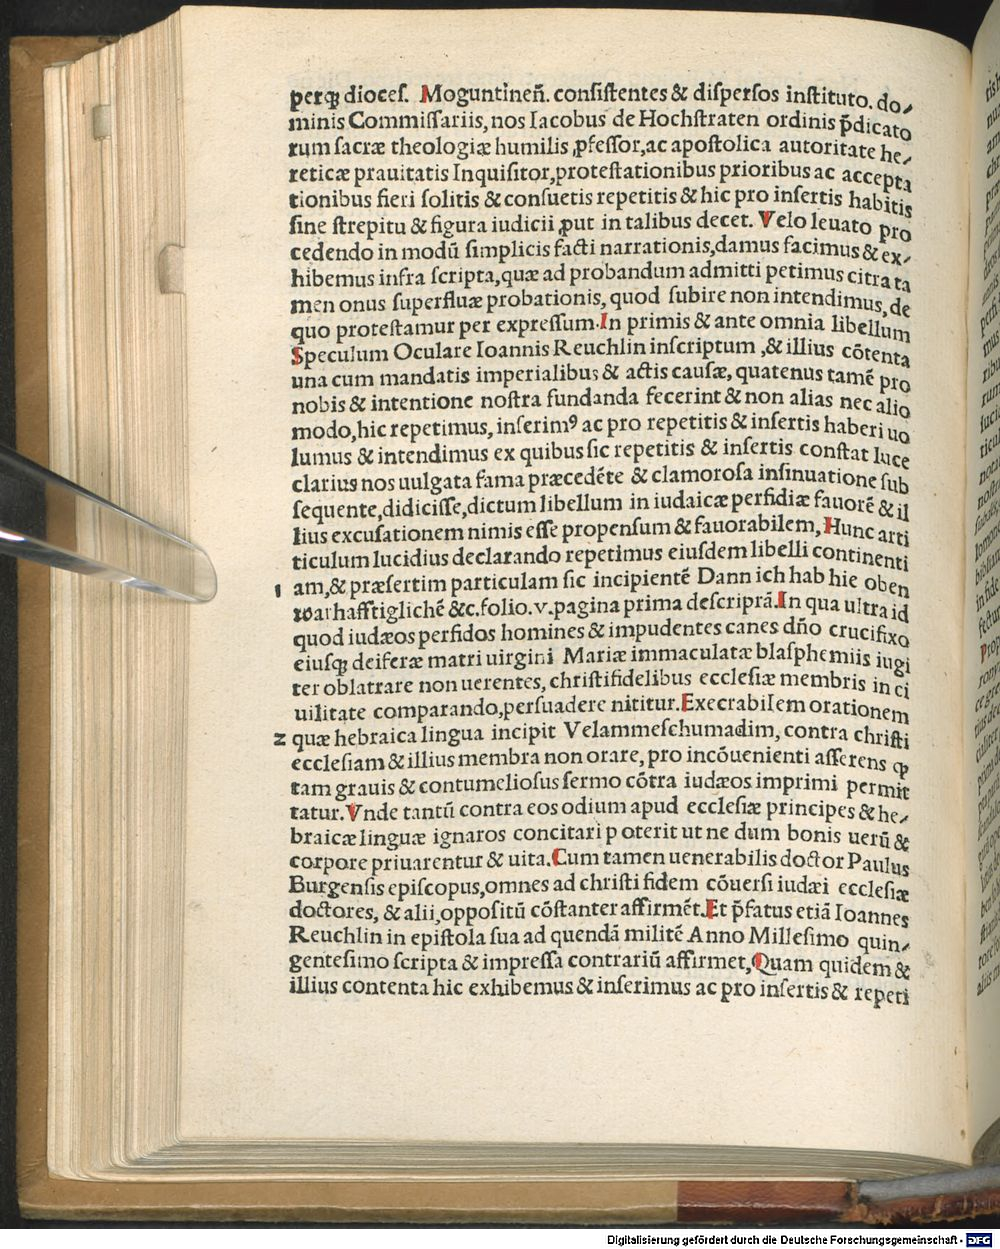 perqꝫ dioceſ. Moguntineñ. conſiſtentes & diſperſos inſtituto. do⸗
minis Commiſſariis, nos Iacobus de Hochſtraten ordinis p̄dicato
rum ſacræ theologiæ humilis ꝓfeſſor, ac apoſtolica autoritate he⸗
reticæ prauitatis Inquiſitor, proteſtationibus prioribus ac accepta
tionibus fieri ſolitis & conſuetis repetitis & hic pro inſertis habitis
ſine ſtrepitu & figura iudicii ꝓut in talibus decet. Velo leuato pro
cedendo in modū ſimplicis facti narrationis, damus facimus & ex⸗
hibemus infra ſcripta, quæ ad probandum admitti petimus citra ta
men onus ſuperfluæ probationis, quod ſubire non intendimus, de
quo proteſtamur per expreſſum. In primis & ante omnia libellum
Speculum Oculare Ioannis Reuchlin inſcriptum, & illius cōtenta
una cum mandatis imperialibus & actis cauſæ, quatenus tamē pro
nobis & intentione noſtra fundanda fecerint & non alias nec alio
modo, hic repetimus, inſerimꝰ ac pro repetitis & inſertis haberi uo
lumus & intendimus ex quibus ſic repetitis & inſertis conſtat luce
clarius nos uulgata fama præcedēte & clamoroſa inſinuatione ſub
ſequente, didiciſſe, dictum libellum in iudaicæ perfidiæ fauorē & il
lius excuſationem nimis eſſe propenſum & fauorabilem, Hunc arti
ticulum lucidius declarando repetimus eiuſdem libelli continenti
1 am, & præſertim particulam ſic incipientē Dann ich hab hie oben
warhafftiglichē &c. folio. v. pagina prima deſcriptā. In qua ultra id
quod iudæos perfidos homines & impudentes canes dño crucifixo
eiuſqꝫ deiferæ matri uirgini Mariæ immaculatæ blaſphemiis iugi
ter oblatrare non uerentes, chriſtifidelibus eccleſiæ membris in ci
uilitate comparando, perſuadere nititur. Execrabilem orationem
2 quæ hebraica lingua incipit Velammeſchumadim, contra chriſti
eccleſiam & illius membra non orare, pro incōuenienti aſſerens ꝙ
tam grauis & contumelioſus ſermo cōtra iudæos imprimi permit
tatur. Vnde tantū contra eos odium apud eccleſiæ principes & he⸗
braicæ linguæ ignaros concitari p oterit ut ne dum bonis uerū &
corpore priuarentur & uita. Cum tamen uenerabilis doctor Paulus
Burgenſis epiſcopus, omnes ad chriſti fidem cōuerſi iudæi eccleſiæ
doctores, & alii, oppoſitū cōſtanter affirmēt. Et p̄fatus etiā Ioannes
Reuchlin in epiſtola ſua ad quendā militē Anno Milleſimo quin⸗
genteſimo ſcripta & impreſſa contrariū affirmet, Quam quidem &
illius contenta hic exhibemus & inſerimus ac pro inſertis & repeti
Digitalisierung gefördert durch die Deutsche Forschungsgemeinschaft - DFG